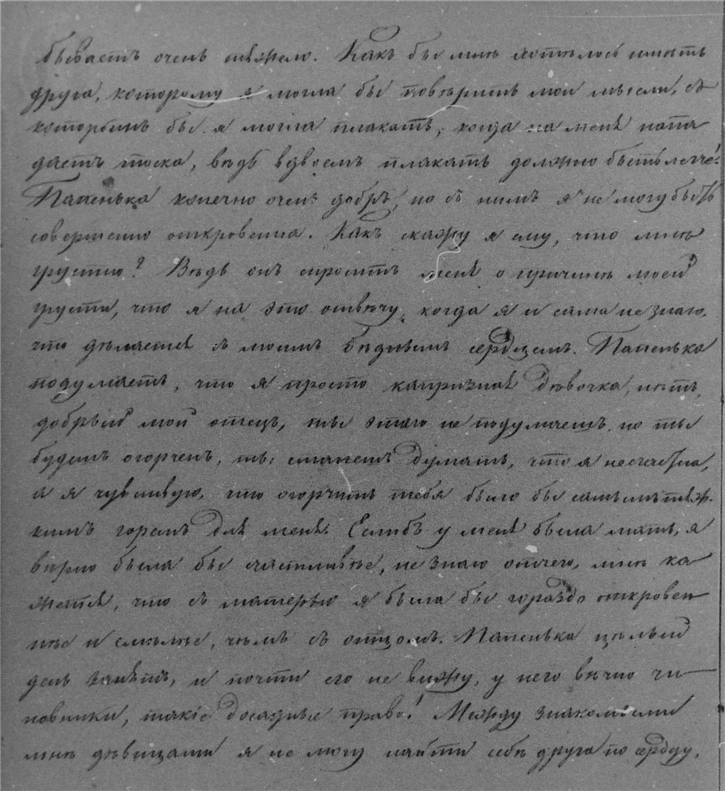 бываетъ очень тяжело. Какъ бы мнѣ хотѣлось имѣть
друга, которому я могла бы повѣрить мои мысли, съ
которымъ бы я могла плакать, когда на меня напа
даетъ тоска, вѣдь вдвоемъ плакать должно быть легче!
Папенька конечно очень добръ, но съ нимъ я не могу быть
совершенно откровенна. Какъ скажу я ему, что мнѣ
грустно? Вѣдь онъ спроситъ меня о причинѣ моей
грусти, что я на это отвѣчу, когда я и сама не знаю,
что дѣлается съ моимъ бѣднымъ сердцемъ. Папенька
подумаетъ, что я просто капризная дѣвочка, нѣтъ,
добрый мой отецъ, ты этого не подумаешь, но ты
будешь огорченъ, ты станешь думать, что я несчастна,
а я чувствую, что огорчить тебя было бы самымъ тяж-
кимъ горемъ для меня. Еслибъ у меня была мать, я
вѣрно была бы счастливѣе, не знаю отчего, мнѣ ка
жется, что съ матерью я была бы гораздо откровен
нѣе и смѣлѣе, чѣмъ съ отцомъ. Папенька цѣлый
день занятъ, я почти его не вижу, у него вѣчно чи-
новники, такіе досадные право! Между знакомыми
мнѣ дѣвицами я не могу найти себѣ друга по сердцу,